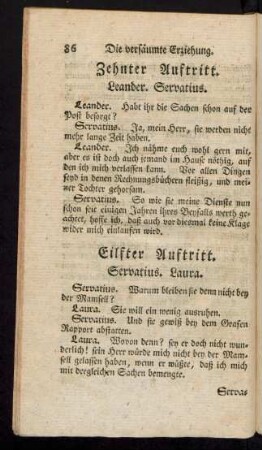 86 Die versäumte Erziehung.
Zehnter Auftritt.
Leander. Servatius.
Leander. Habt ihr die Sachen schon auf der
Post besorgt?
Servatius. Ja, mein Herr, sie werden nicht
mehr lange Zeit haben.
Leander. Ich nähme euch wohl gern mit,
aber es ist doch auch jemand im Hause nöthig, auf
den ich mich verlassen kann. Vor allen Dingen
seyd in denen Rechnungsbüchern fleißig, und mei-
ner Tochter gehorsam.
Servatius. So wie sie meine Dienste nun
schon seit einigen Jahren ihres Beyfalls werth ge-
achtet, hoffe ich, daß auch vor diesmal keine Klage
wider mich einlaufen wird.
Eilfter Auftritt.
Servatius. Laura.
Servatius. Warum bleiben sie denn nicht bey
der Mamsell?
Laura. Sie will ein wenig ausruhen.
Servatius. Und sie gewiß bey dem Grafen
Rapport abstatten.
Laura. Wovon denn? sey er doch nicht wun-
derlich! sein Herr würde mich nicht bey der Mam-
sell gelassen haben, wenn er wüßte, daß ich mich
mit dergleichen Sachen bemengte.
Servas